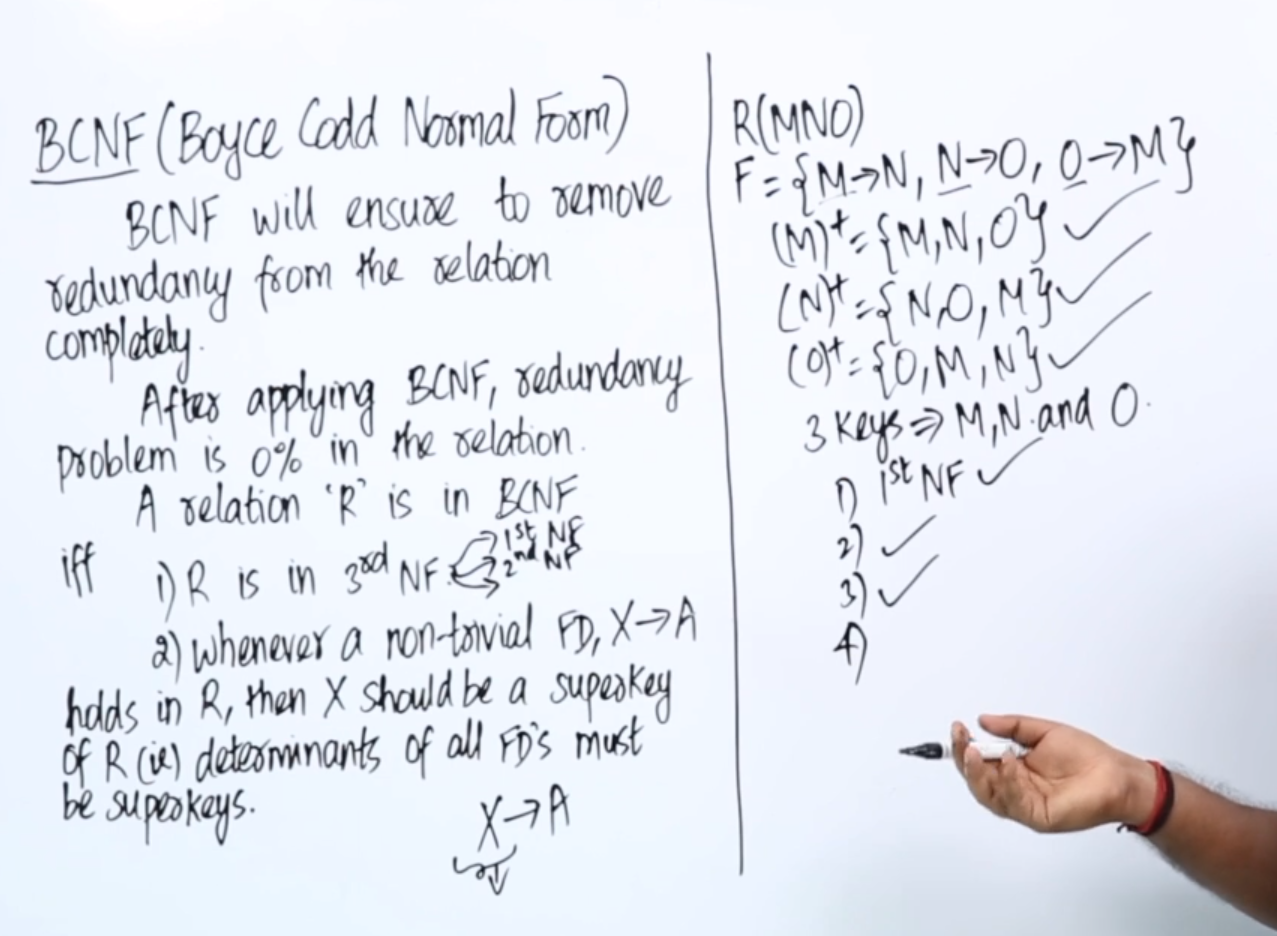 BCNF (Boyce Codd Normal Form)
BCNF will ensure to remove
redundancy from the relation
completely.
After applying BCNF, redundancy
problem is 0% in the relation.
A relation 'R' is in BCNF
iff
1) R is in 3rd NF. 1st NF
2nd NF
2) Whenever a non-trivial FD, X→A
holds in R, then X should be a superkey
of R (ie) determinants of all FD's must
be superkeys.
X→A
R(MNO)
F = {M→N, N→O, O→M}
(M)+ = {M,N,O} ✓
(N)+ = {N,O,M} ✓
(O)+ = {O,M,N} ✓
3 Keys ⇒ M,N and O.
1) 1st NF ✓
2) ✓
3) ✓
4)